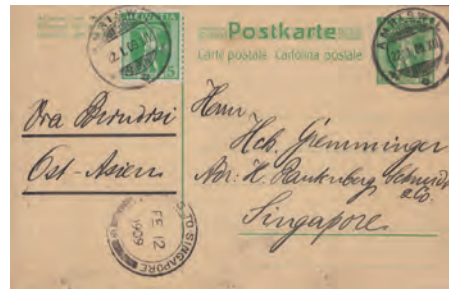 Postkarte
Carte postale. Cartolina postale.
AMRISWIL
HELVETIA
5
AMRISWIL
22.I.09.
Via Brindisi
Ost-Asien
Herrn
Hch. Gremminger
Adr: H. Rautenberg Schmidt
& Co.
Singapore
TO SINGAPORE
FE 12
1909